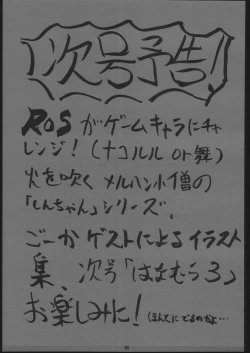 次号予告!
ROSがゲームキャラにチャ
レンジ!(ナコルル or 舞)
火を吹くメルヘン小僧の
「しんちゃん」シリーズ、
ごーかゲストによるイラスト
集、次号「はまむら3」
お楽しみに!(ほんとにでるのかよ…